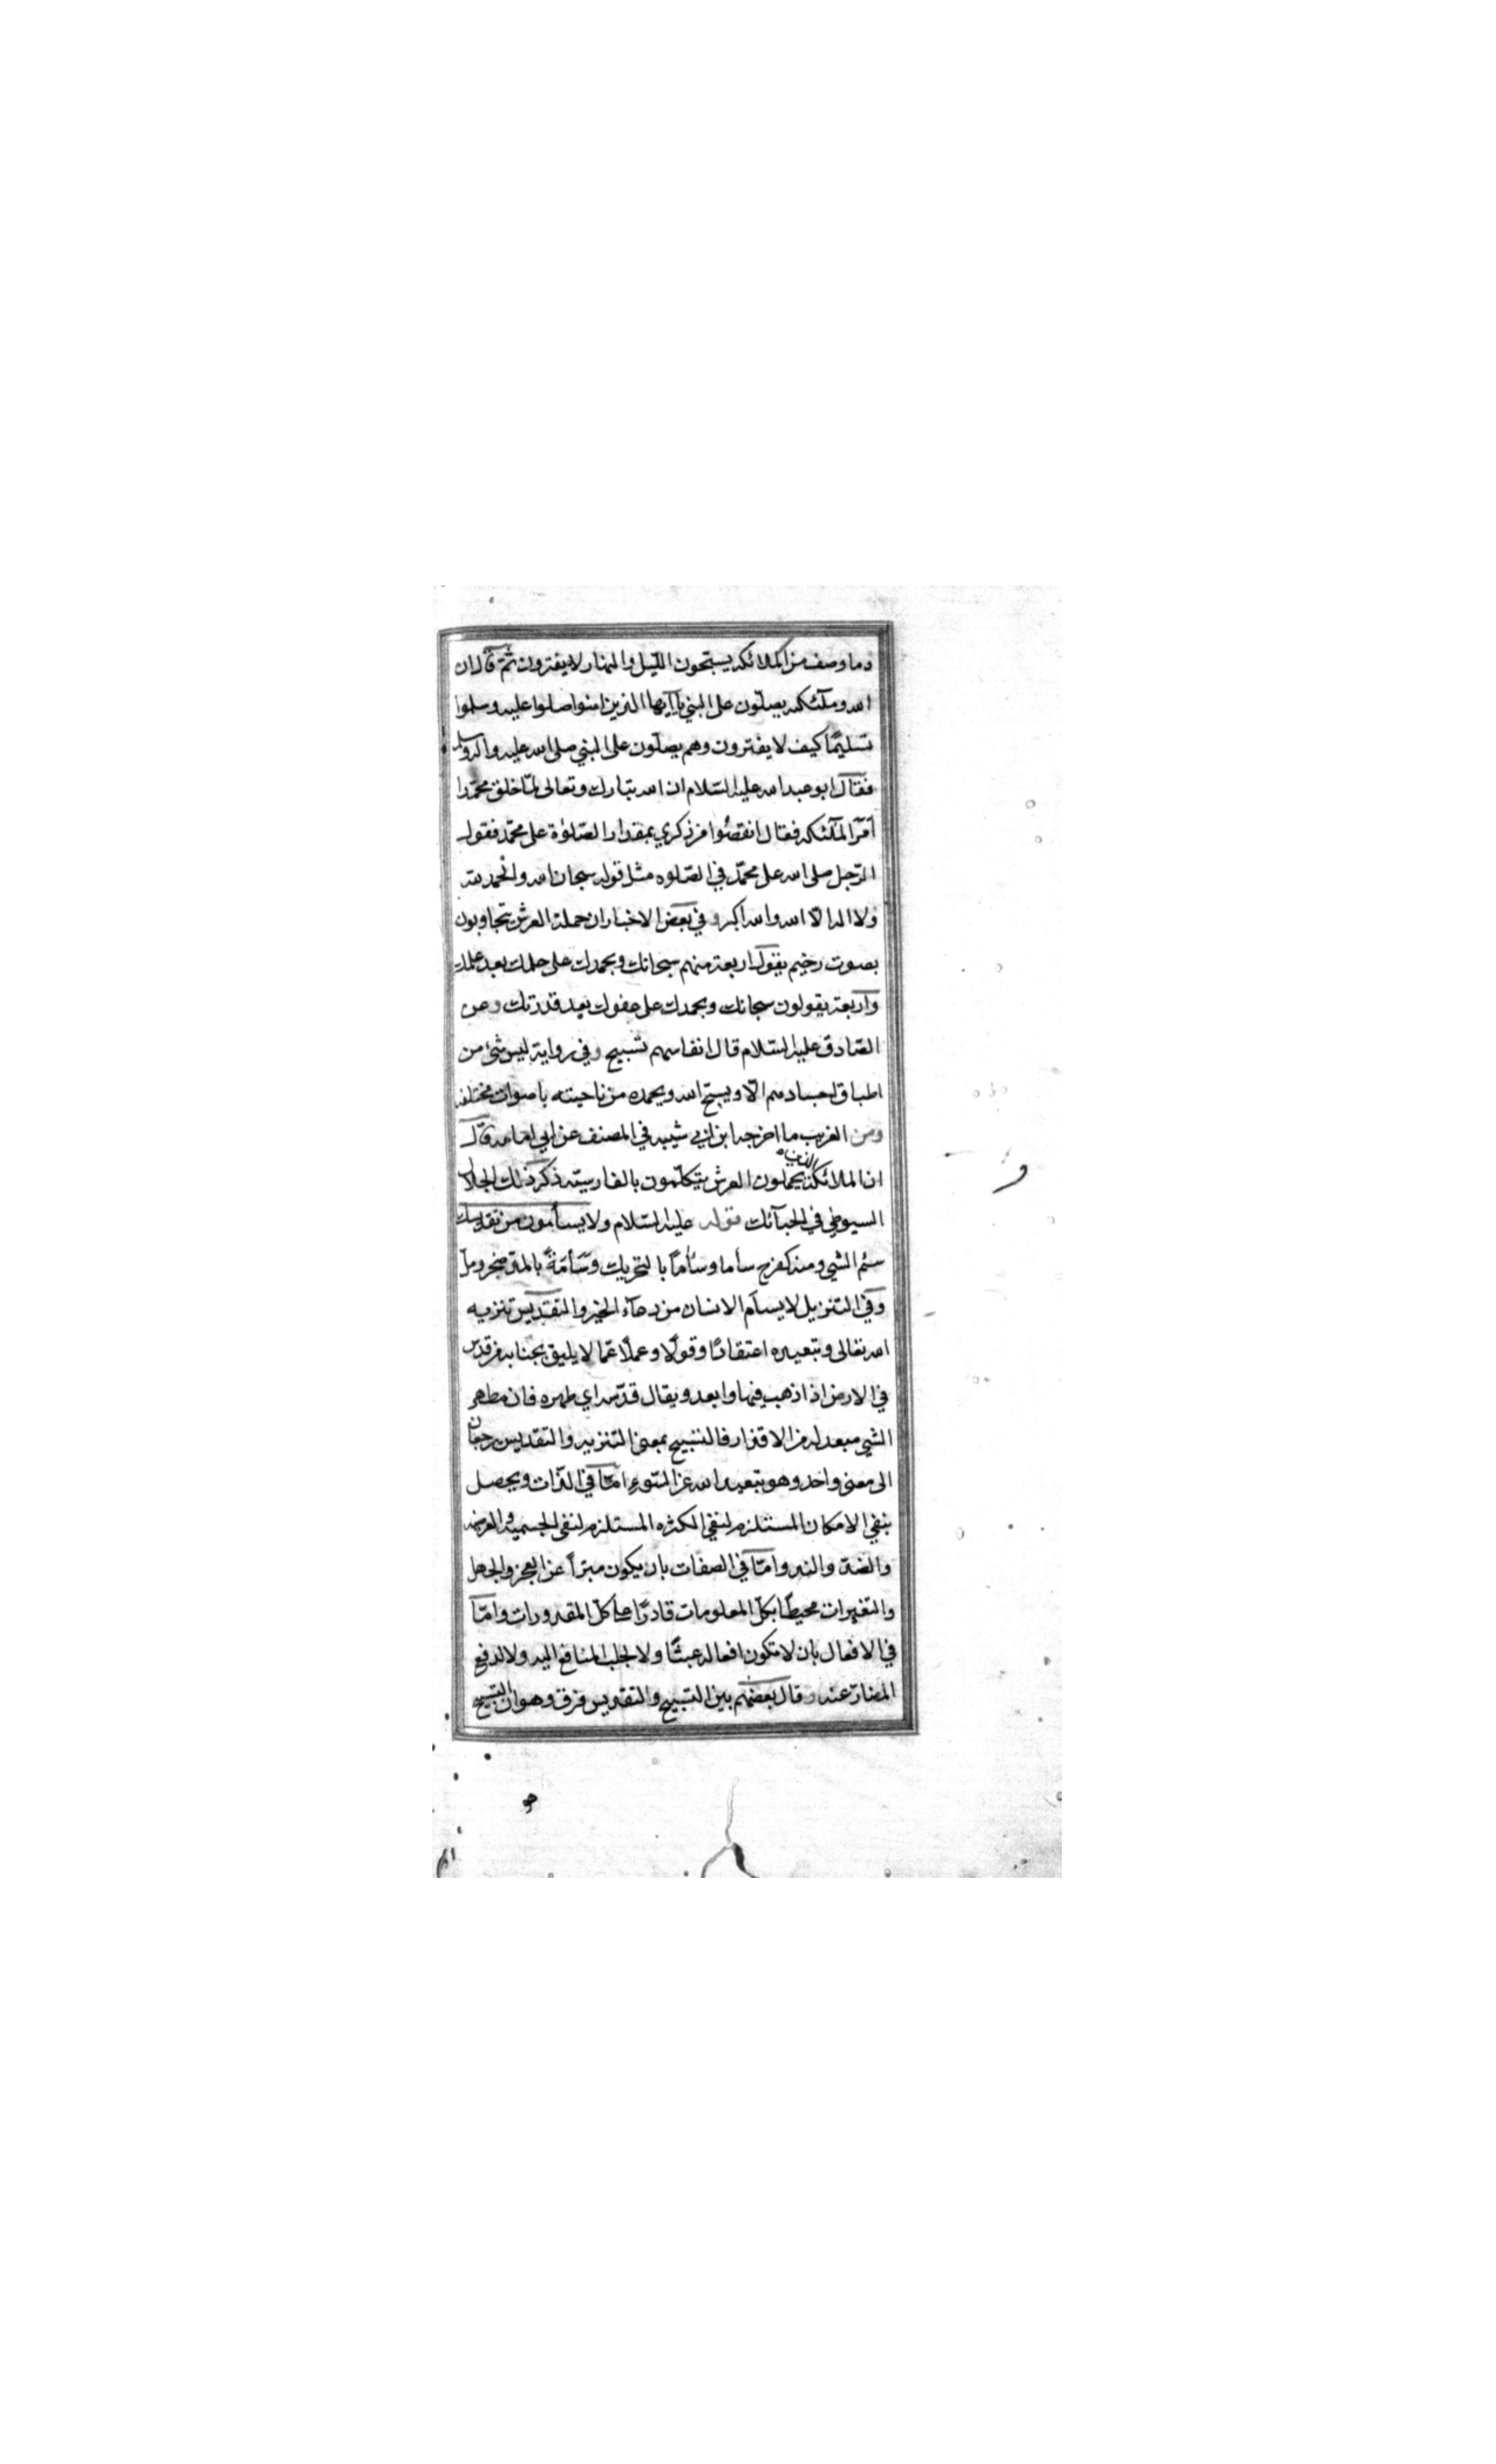 وما وصف من الملائكة يسبّحون اللّيل والنهار لا يفترون ثمّ قال ان
الله وملئكته يصلّون على النبي يا آيها الذين امنوا صلوا عليه وسلموا
تسليمًا كيف لا يفترون وهم يصلّون على النبي صلى الله عليه واله وسلم
فقال ابو عبد الله عليه السّلام ان الله تبارك وتعالى لمّا خلق محمّدا
أمر الملئكه فقال انقصُوا من ذكري بمقدار الصّلوٰة على محمّد فقول
الرّجل صلى الله على محمّد في الصّلوه مثل قوله سبحان الله والحمد لله
ولا اله الّا الله والله اكبر وفي بعض الاخبار ان حملة العرش يتجاوبون
بصوت رخيم يقول اربعة منهم سبحانك وبحمدك على حلمك بعد علمك
وأربعة يقولون سبحانك وبحمدك على عفوك بعد قدرتك وعن
الصّادق عليه السّلام قال انفاسهم تسبيح وفي رواية ليس شئ من
اطباق اجسادهم الّا ويسبّح الله ويحمده من ناحيته باصوات مختلفه
ومن الغريب ما اخرجه ابن ابي شيبه في المصنف عن ابي امامه قال
ان الملائكة الذين يحملون العرش يتكلّمون بالفارسيّة ذكر ذلك الجلال
السيوطي في الحبآئك قوله عليه السّلام ولا يسأمون من تقديسك
سئم الشي ومنه كفرح سأما وسأمًا بالتحريك وسَآمَةً بالمدّ ضجر وملّ
وفي التنزيل لا يسأم الانسان من دعآء الخير والتقديس تنزيه
الله تعالى وتبعيده اعتقادًا وقولًا وعملًا عمّا لا يليق بجنابه من قدّس
في الارض اذا ذهب فيها وابعد ويقال قدّسه اي طهره فان مطهر
الشي مبعد له من الاقذار فالتسبيح بمعنى التنزيه والتقديس يرجعان
الى معنى واحد وهو تبعيد الله عن السّوء امّا في الذّات ويحصل
بنفي الامكان المستلزم لنفي الكثره المستلزم لنفي الجسميه والعرضيه
والضد والند وامّا في الصفات بان يكون مبرّأً عن العجز والجهل
والتغيرات محيطًا بكلّ المعلومات قادرًا على كلّ المقدورات وامّا
في الافعال بان لا تكون افعاله عبثًا ولا لجلب المنافع اليه ولا لدفع
المضارّ عنه وقال بعضهم بين التسبيح والتقديس فرق وهو ان التسبيح